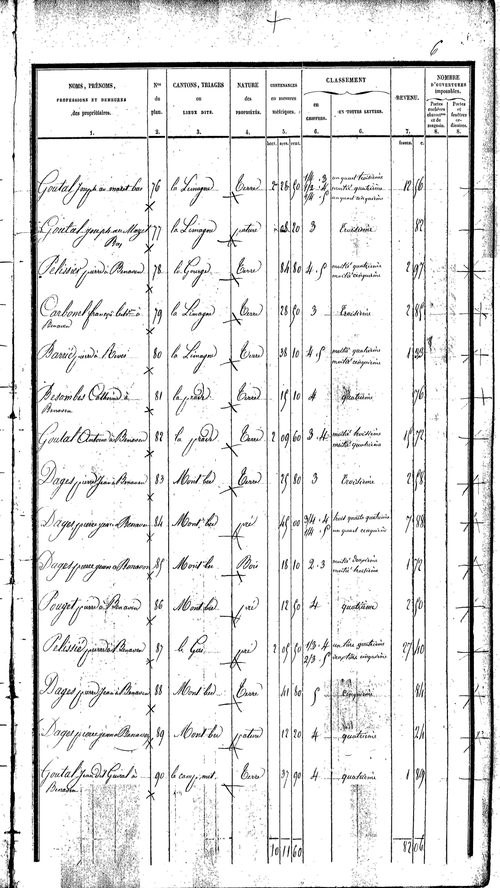 6
NOMS, PRÉNOMS,
PROFESSIONS ET DEMEURES
des propriétaires.
Nos
du
plan.
CANTONS, TRIAGES
ou
LIEUX DITS.
NATURE
des
PROPRIÉTÉS.
CONTENANCES
en mesures
métriques.
CLASSEMENT
en
CHIFFRES.
EN TOUTES LETTRES.
REVENU.
NOMBRE
D'OUVERTURES
imposables.
Portes
cochères
et de
magasin.
Portes
et
fenêtres
ordinaires.
1. 2. 3. 4. 5. 6. 6. 7. 8. 8.
hect. ares. cent. francs. c.
Goutal Joseph au mazet bas 76 la Limagne Terre 2 28 50 1/4 . 3 un quart troisième 12 56
1/2 . 4 moitié quatrième
1/4 . 5 un quart cinquième
Goutal joseph au Mazet 77 la Limagne pature 20 3 Troisième 82
Bas
Pelissier pierre à Benaven 78 la Gourge Terre 84 80 4 . 5 moitié quatrième 2 97
moitié cinquième
Carbonel françois à 79 la Limagne Terre 28 50 3 Troisième 2 85
Benaven
Barrié 80 la Limagne Terre 38 10 4 . 5 moitié quatrième 1 33
moitié cinquième
Besombes Catherine à 81 la prade Terre 15 10 4 quatrième 76
Benaven
Goutal Antoine à Benaven 82 la prade Terre 2 09 60 3 . 4 moitié troisième 15 72
moitié quatrième
Dages pierre Jean à Benaven 83 Mont bru Terre 25 80 3 Troisième 2 58
Dages pierre jean à Benaven 84 Mont bru pré 45 00 3/4 . 4 trois quarts quatrième 7 88
1/4 . 5 un quart cinquième
Dages pierre jean à Benaven 85 Mont bru Bois 18 10 2 . 3 moitié deuxième 1 72
moitié troisième
Pouget pierre à Benaven 86 Mont bru pré 12 50 4 quatrième 2 50
Pelissié pierre à Benaven 87 le Gua pré 2 05 50 1/3 . 4 un tiers quatrième 27 40
2/3 . 5 deux tiers cinquième
Dages pierre Jean à Benaven 88 Mont bru Terre 41 80 5 Cinquième 84
Dages pierre jean à Benaven 89 Mont bru pature 12 20 4 quatrième 24
Goutal Jean à 90 le camp Terre 37 90 4 quatrième 1 89
Benaven
10 11 60 82 06